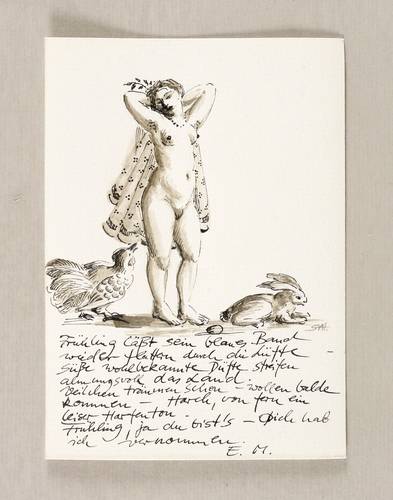 Frühling läßt sein blaues Band
wieder flattern durch die Lüfte -
Süße wohlbekannte Düfte streifen
ahnungsvoll das Land
Veilchen träumen schon - wollen balde
kommen - Horch, von fern ein
leiser Harfenton -
Frühling, ja du bist's - Dich hab
ich vernommen.
E. M.